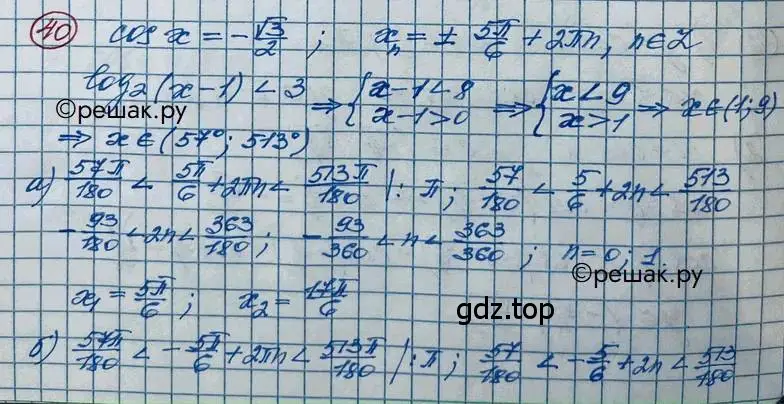 40 cos x = -√3/2 ; xₙ = ± 5π/6 + 2πn, n∈Z
log₂(x-1) < 3 ⇒ {x-1<8 x-1>0 ⇒ {x<9 x>1 ⇒ x∈(1;9)
©решак.ру
⇒ x∈(57°; 513°)
а) 57π/180 < 5π/6 + 2πn < 513π/180 |: π; 57/180 < 5/6 + 2n < 513/180
-93/180 < 2n < 363/180 ; -93/360 < n < 363/360 ; n=0; 1.
©решак.ру
x₁ = 5π/6 ; x₂ = 17π/6
gdz.top
б) 57π/180 < -5π/6 + 2πn < 513π/180 |: π; 57/180 < -5/6 + 2n < 513/180